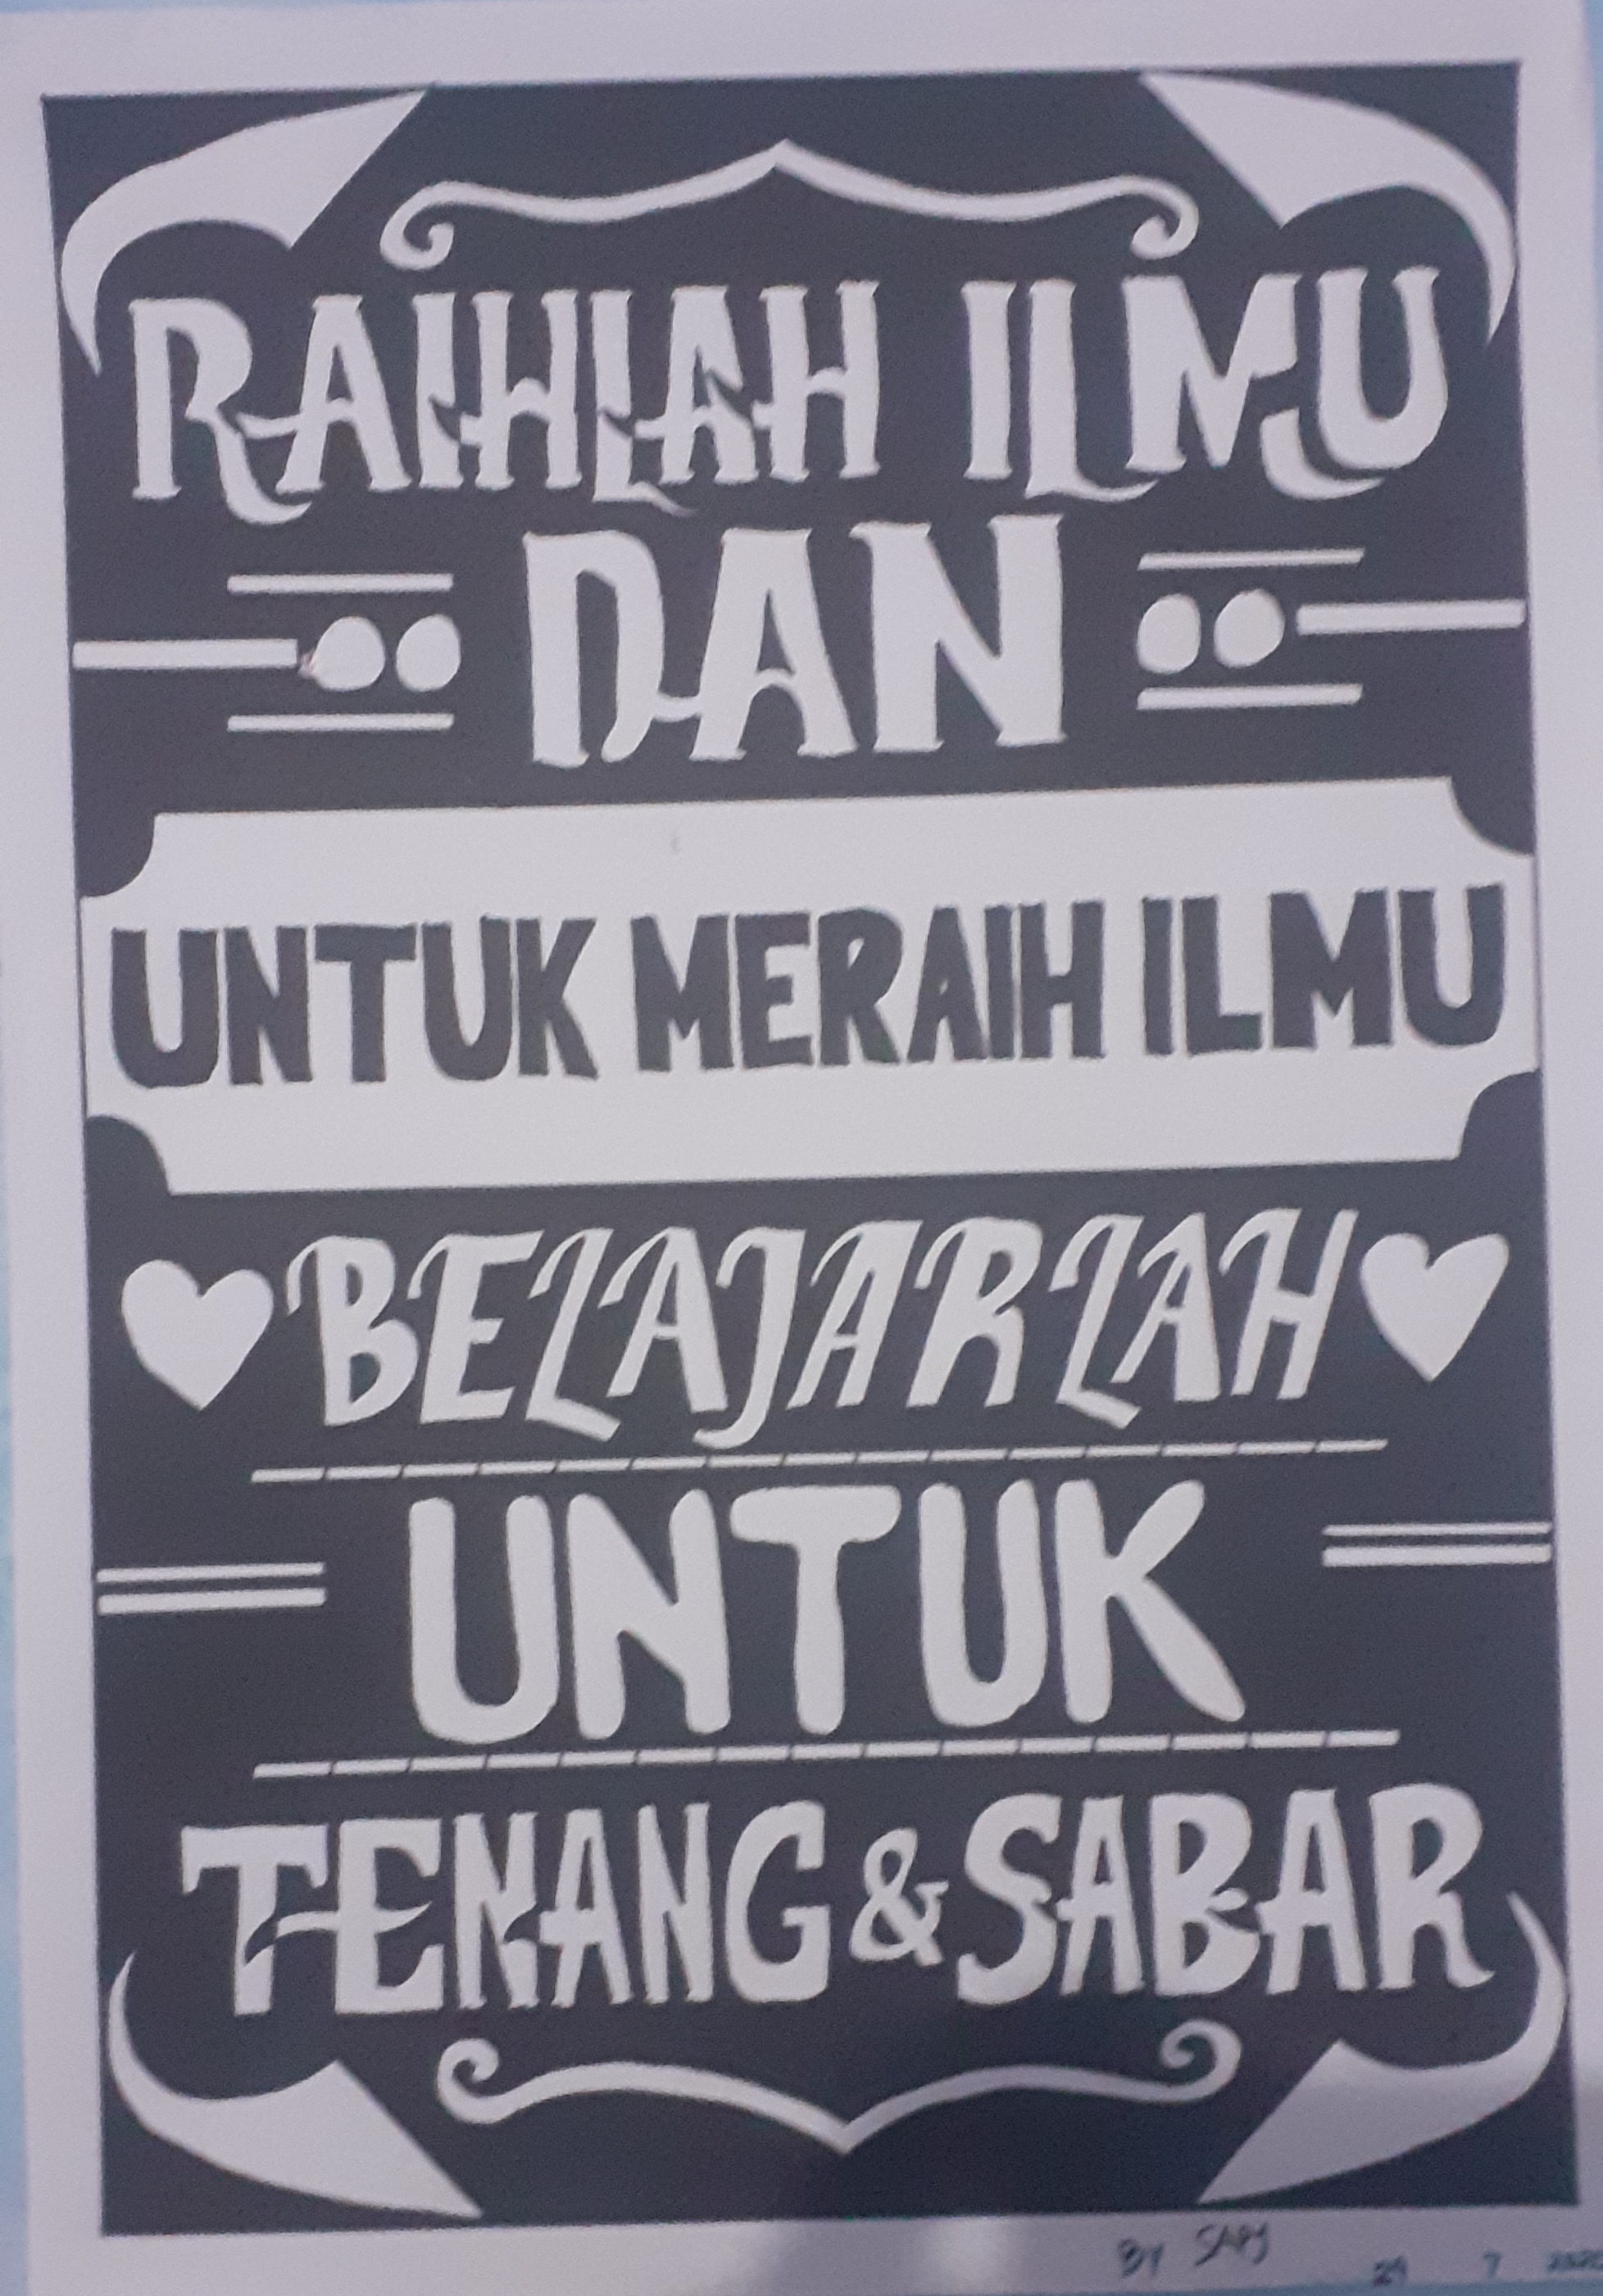 RAIHLAH ILMU
DAN
UNTUK MERAIH ILMU
BELAJARLAH
UNTUK
TENANG & SABAR
BY
29 7 2020